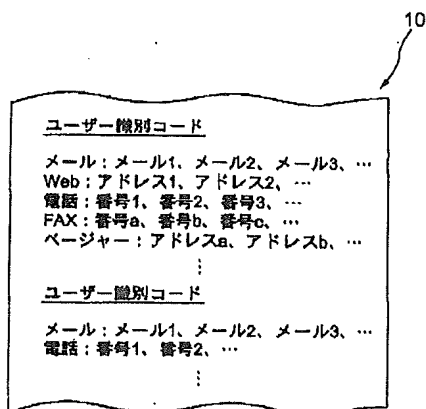 10
ユーザー識別コード
メール：メール1、メール2、メール3、…
Web：アドレス1、アドレス2、…
電話：番号1、番号2、番号3、…
FAX：番号a、番号b、番号c、…
ページャー：アドレスa、アドレスb、…
⋮
ユーザー識別コード
メール：メール1、メール2、メール3、…
電話：番号1、番号2、…
⋮